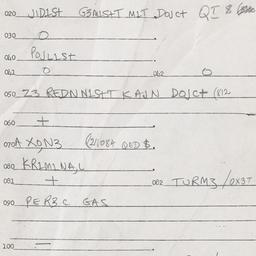 020 JIDIST G3AISHT MIT DOJCT QI &
030 O
040 POJLIST
041 O 042 O
050 23 REDNNISHT KAJN DOJCT (K12
060 +
070 A XON3 (2/1084 QED $.
080 KRIMINAL
081 + 082 TURM3/OX3T
090 PER3C GAS
100 —